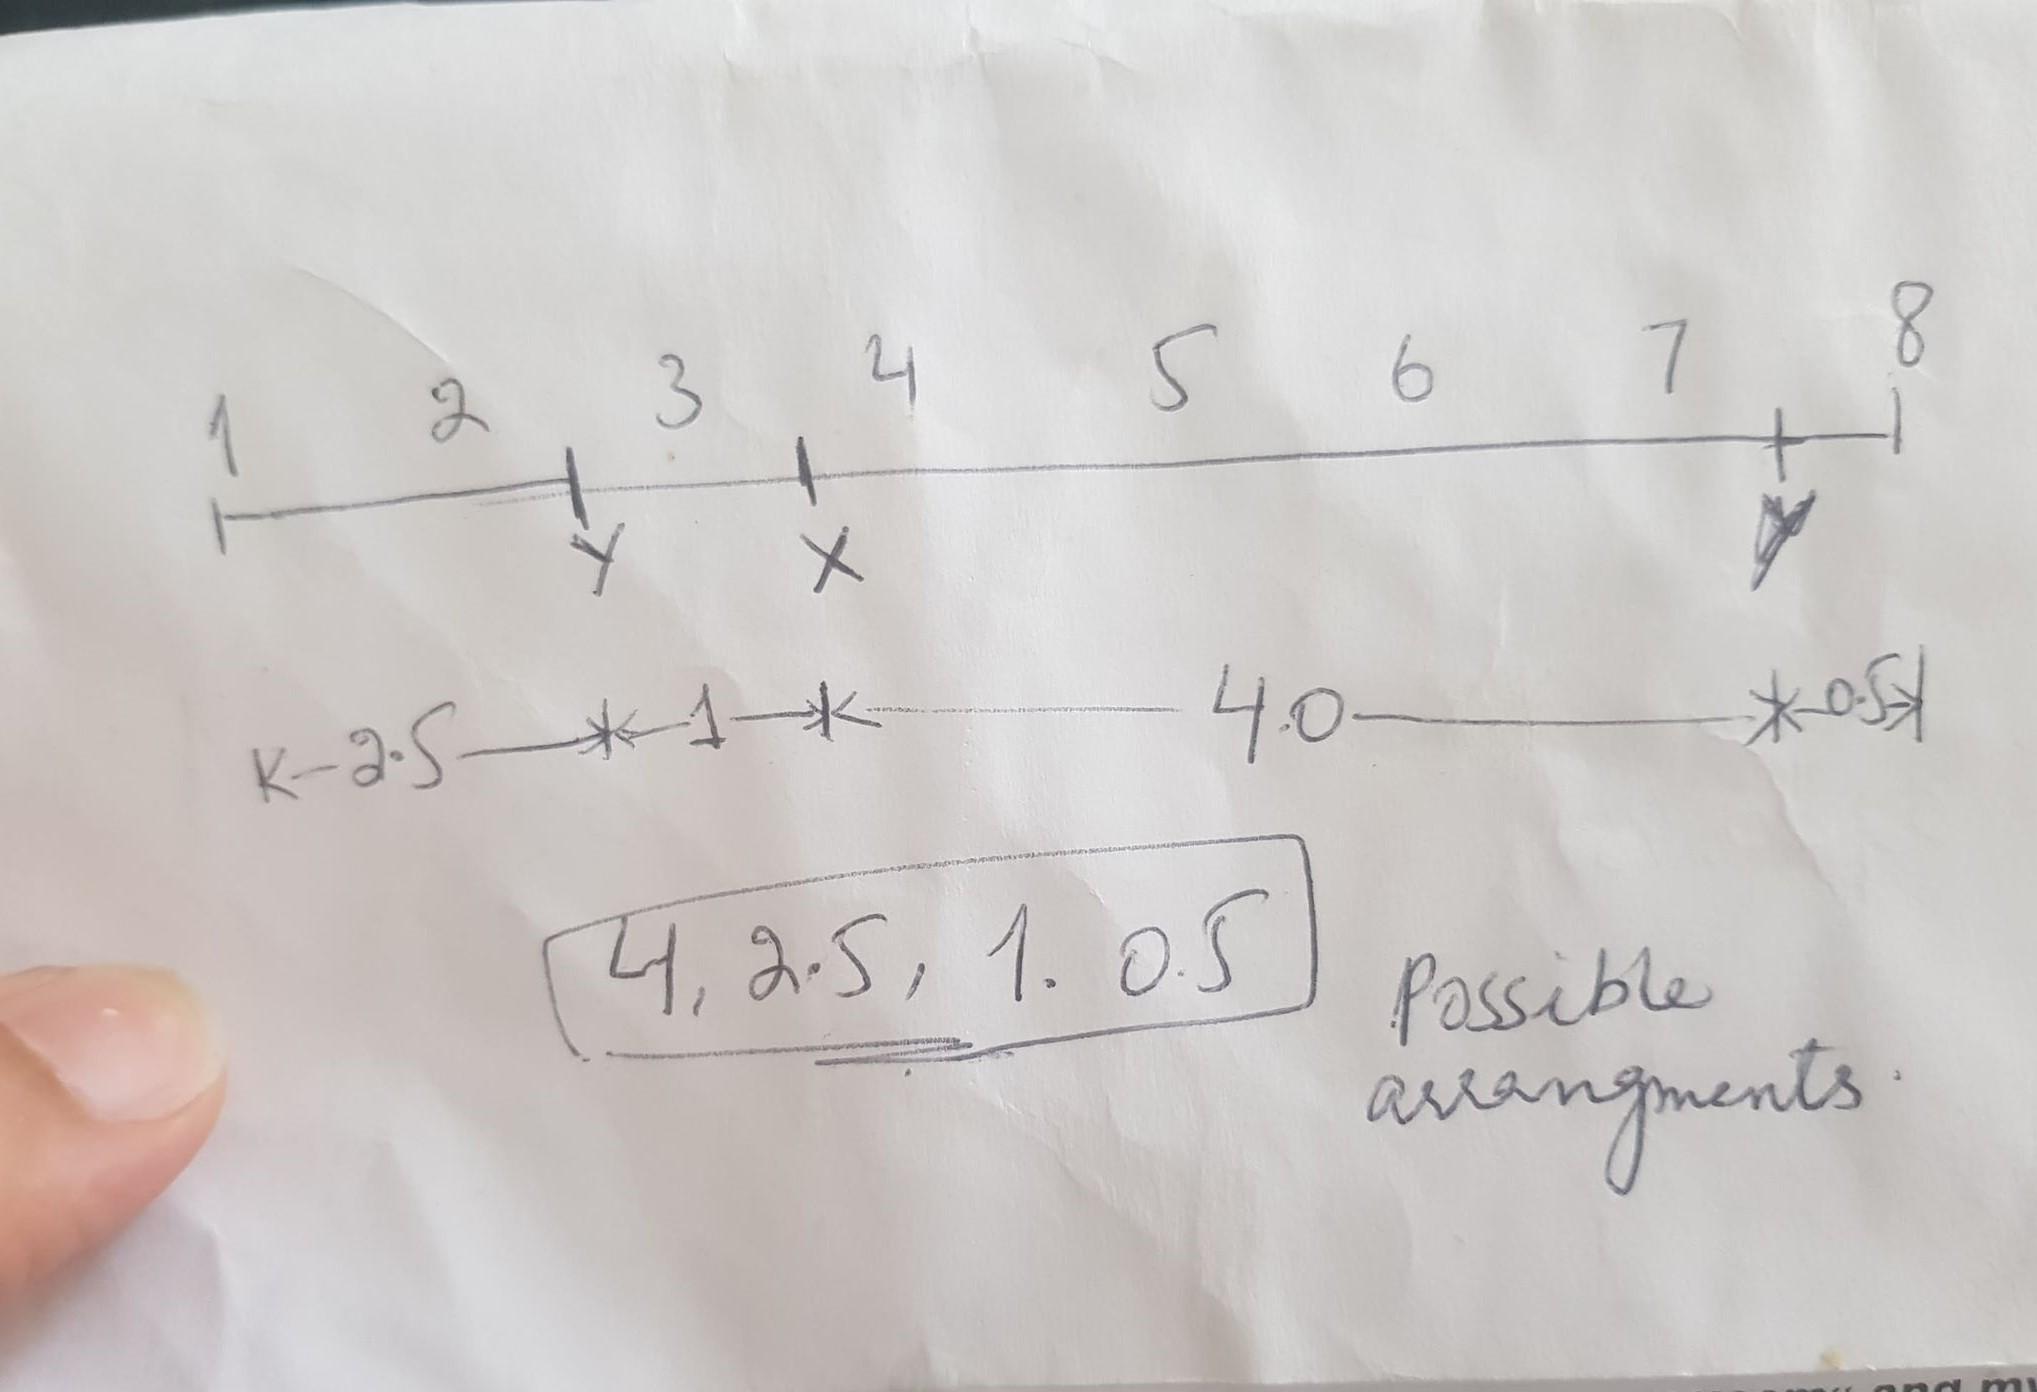 1 2 3 4 5 6 7 8
Y X Y
K-2.5 1 4.0 0.5
4, 2.5, 1. 0.5
Possible
arrangments.